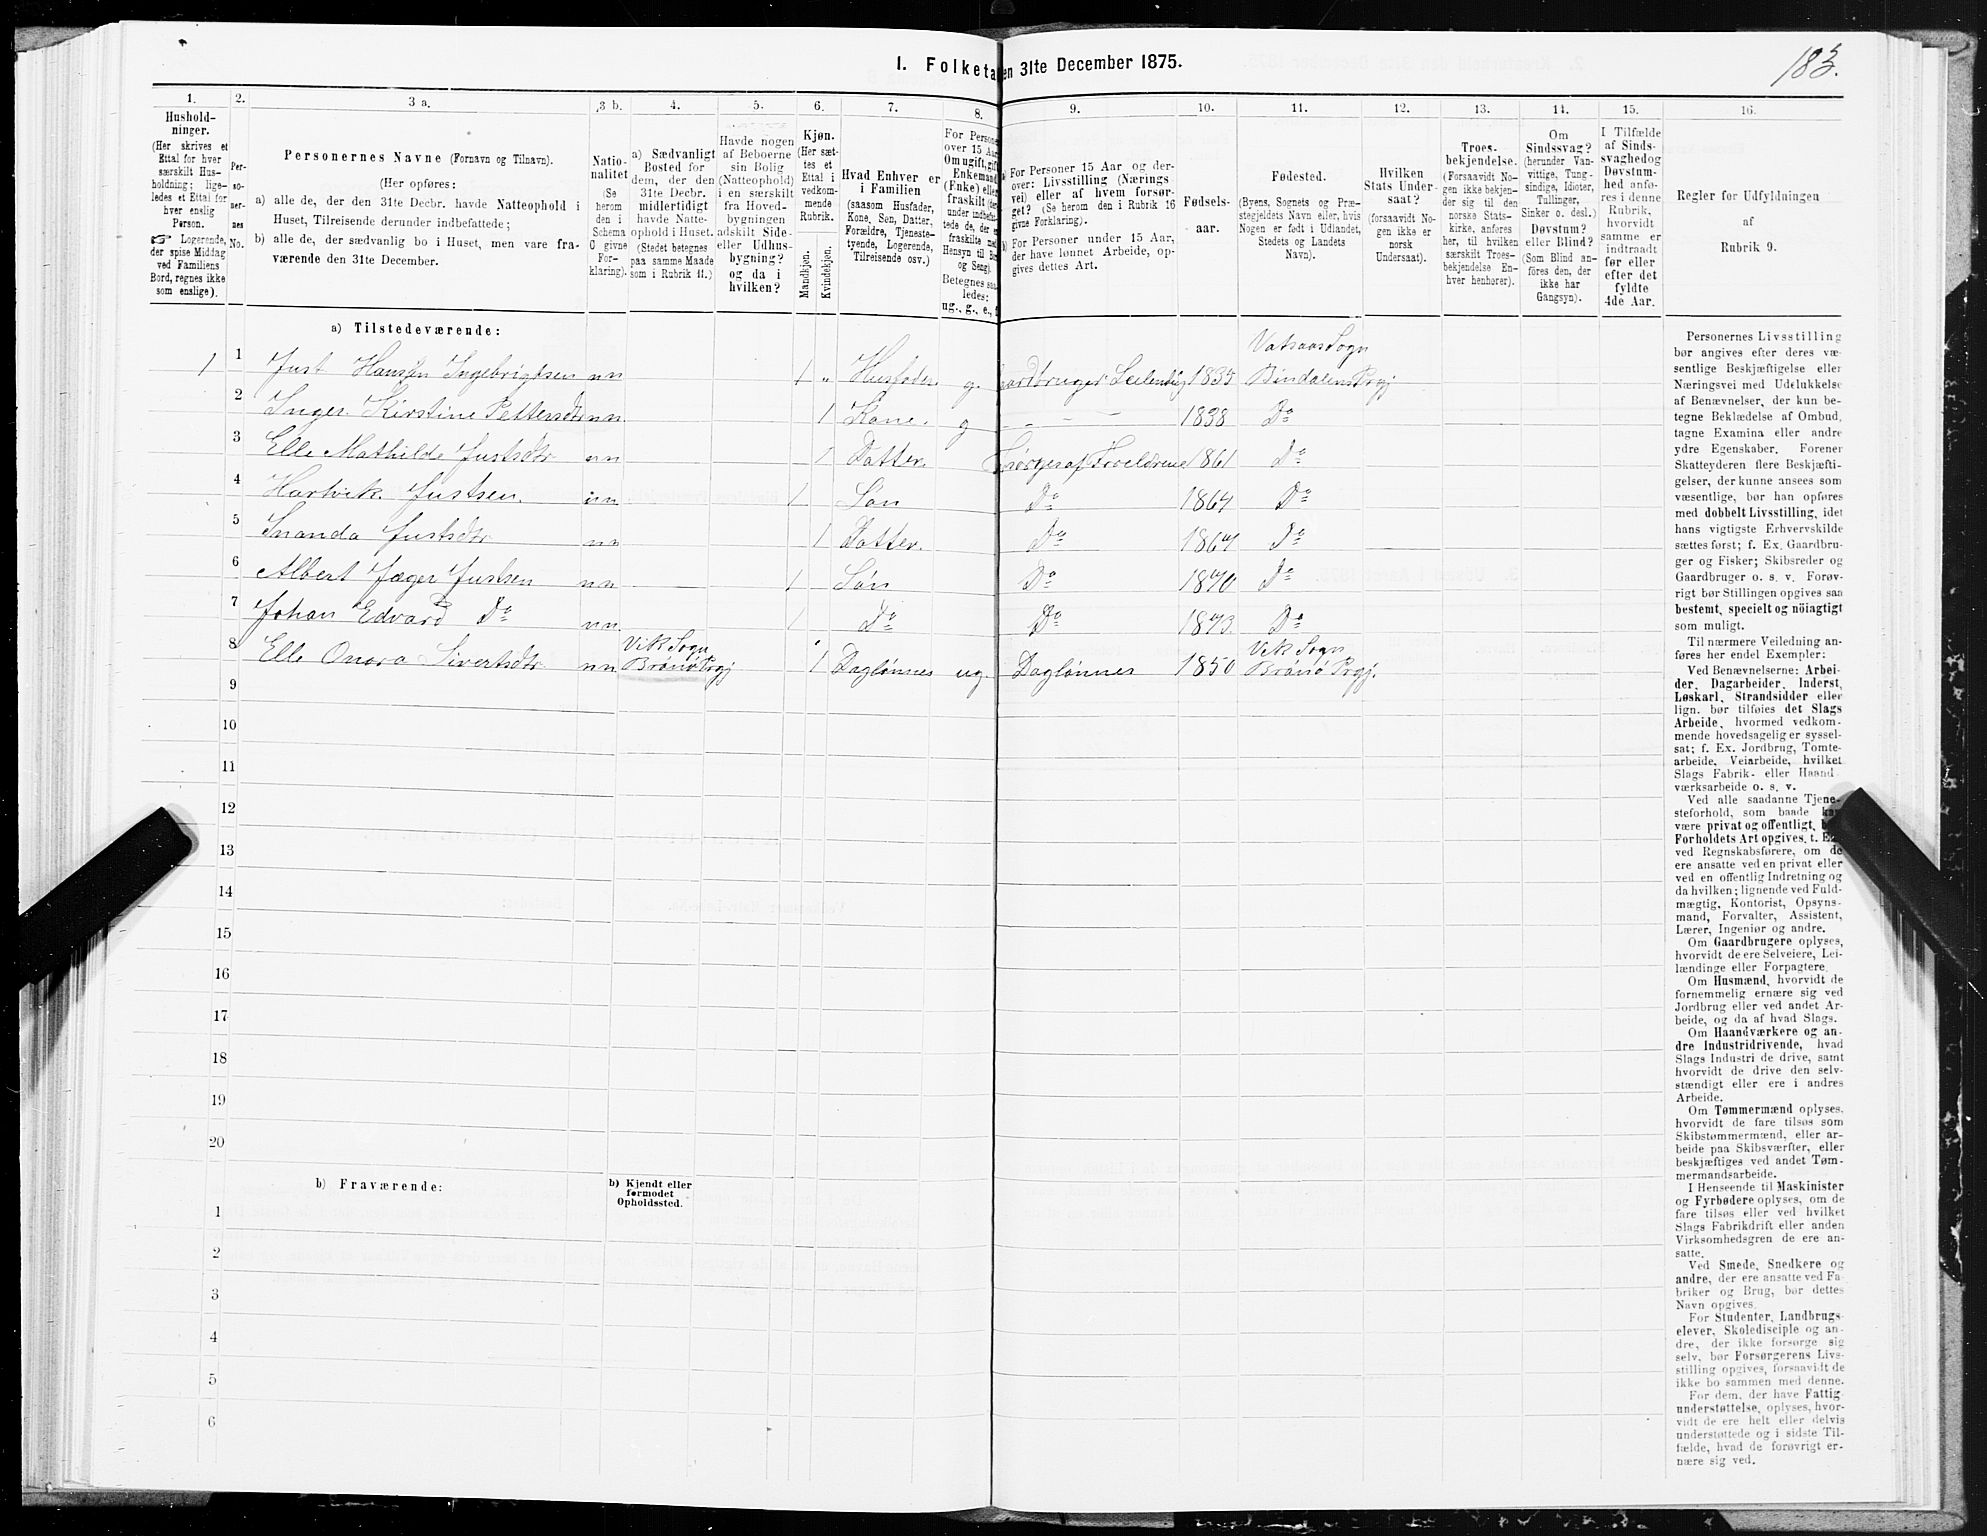 183.
I. Folketa en 31te December 1875.
1.
Hushold-
ninger.
(Her skrives et
Ettal for hver
særskilt Hus-
holdning; lige-
ledes et Ettal for
hver enslig
Person.
☞ Logerende,
der spise Middag
ved Familiens
Bord, regnes ikke
som enslige).
2.
Per-
so-
ner-
nes
No.
3 a.
Personernes Navne (Fornavn og Tilnavn).
(Her opføres:
a) alle de, der den 31te Decbr. havde Natteophold i
Huset, Tilreisende derunder indbefattede;
b) alle de, der sædvanlig bo i Huset, men vare fra-
værende den 31te December.
3 b.
Natio-
nalitet
(Se
herom
den i
Schema
C givne
For-
klaring).
4.
a) Sædvanligt
Bosted for
dem, der den
31te Decbr.
midlertidigt
havde Natte-
ophold i Huset.
(Stedet betegnes
paa samme Maade
som i Rubrik 11.)
5.
Havde nogen
af Beboerne
sin Bolig
(Natteophold)
i en særskilt
fra Hoved-
bygningen
adskilt Side-
eller Udhus-
bygning?
og da i
hvilken?
6.
Kjøn.
(Her sæt-
tes et
Ettal i
vedkom-
mende
Rubrik.
Mandkjøn.
Kvindekjøn.
7.
Hvad Enhver er
i Familien
(saasom Husfader,
Kone, Søn, Datter,
Forældre, Tjeneste-
tyende, Logerende,
Tilreisende osv.)
8.
For Persone
over 15 Aar
Om ugift, gift
Enkemand
(Enke) elle
fraskilt (der
under indbefa-
tede de, der e
fraskilte med
Hensyn til Bo
og Seng).
Betegnes saa
ledes:
ug., g., e., f
9.
a) For Personer 15 Aar og der-
over: Livsstilling (Nærings-
vei) eller af hvem forsør-
get? (Se herom den i Rubrik 16
givne Forklaring).
b) For Personer under 15 Aar,
der have lønnet Arbeide, op-
gives dettes Art.
10.
Fødsels-
aar.
11.
Fødested.
(Byens, Sognets og Præ-
stegjeldets Navn eller, hvis
Nogen er født i Udlandet,
Stedets og Landets
Navn).
12.
Hvilken
Stats Under-
saat?
(forsaavidt No-
gen ikke er
norsk
Undersaat).
13.
Troes-
bekjendelse.
(Forsaavidt No-
gen ikke bekjen-
der sig til den
norske Stats-
kirke, anføres
her, til hvilken
særskilt Troes-
bekjendelse En-
hver henhører).
14.
Om
Sindssvag?
(herunder Van-
vittige, Tung-
sindige, Idioter,
Tullinger,
Sinker o. desl.)
Døvstum?
eller Blind?
(Som Blind an-
føres den, der
ikke har
Gangsyn).
15.
I Tilfælde
af Sinds-
svaghed og
Døvstum-
hed anfø-
res i denne
Rubrik,
hvorvidt
samme er
indtraadt
før eller
efter det
fyldte
4de Aar.
16.
Regler for Udfyldningen
af
Rubrik 9.
a) Tilstedeværende:
Vatsaas Sogn
1 1 Just Hansen Ingebrigtsen nn 1 " Husfader g. aardbruger Leilending 1835 Bindalens Prgj
2 Inger Kirstine Pettersdtr nn 1 Kone. g - - 1838 Do
3 Elle Mathilde Justsdtr nn 1 Datter. Forsørges af Forældrene 1861 Do
4 Hartvik Justsen. nn 1 Søn Do 1864 Do
5 Inanda Justsdtr nn 1 Datter. Do 1867 Do
6 Albert Jæger Justsen nn 1 Søn Do 1870 Do
7 Johan Edvard Do nn 1 Do Do 1873 Do
Vik Sogn Vik Sogn
8 Elle Onora Sivertsdtr nn Brønø Prgj 1 Daglønnes ug. Daglønnes 1850 Brønø Prgj.
9
10
11
12
13
14
15
16
17
18
19
20
b) Fraværende:
b) Kjendt eller
formodet
Opholdssted.
1
2
3
4
5
6
Personernes Livsstilling
bør angives efter deres væ-
sentlige Beskjæftigelse eller
Næringsvei med Udelukkelse
af Benævnelser, der kun be-
tegne Beklædelse af Ombud,
tagne Examina eller andre
ydre Egenskaber. Forener
Skatteyderen flere Beskjæfti-
gelser, der kunne ansees som
væsentlige, bør han opføres
med dobbelt Livsstilling, idet
hans vigtigste Erhvervskilde
sættes først; f. Ex. Gaardbru-
ger og Fisker; Skibsreder og
Gaardbruger o. s. v. Forøv-
rigt bør Stillingen opgives saa
bestemt, specielt og nöiagtigt
som muligt.
Til nærmere Veiledning an-
føres her endel Exempler:
Ved Benævnelserne: Arbei-
der, Dagarbeider, Inderst,
Løskarl, Strandsidder eller
lign. bør tilføies det Slags
Arbeide, hvormed vedkom-
mende hovedsagelig er syssel-
sat; f. Ex. Jordbrug, Tomte-
arbeide, Veiarbeide, hvilket
Slags Fabrik- eller Haand
værksarbeide o. s. v.
Ved alle saadanne Tjene-
steforhold, som baade kan
være privat og offentligt,
Forholdets Art opgives, t. Ex.
ved Regnskabsførere, om de
ere ansatte ved en privat eller
ved en offentlig Indretning og
da hvilken; lignende ved Fuld-
mægtig, Kontorist, Opsyns-
mand, Forvalter, Assistent,
Lærer, Ingeniør og andre.
Om Gaardbrugere oplyses,
hvorvidt de ere Selveiere, Lei-
lændinge eller Forpagtere.
Om Husmænd, hvorvidt de
fornemmelig ernære sig ved
Jordbrug eller ved andet Ar-
beide, og da af hvad Slags.
Om Haandværkere og an-
dre Industridrivende, hvad
Slags Industri de drive, samt
hvorvidt de drive den selv-
stændigt eller ere i andres
Arbeide.
Om Tømmermænd oplyses,
hvorvidt de fare tilsøs som
Skibstømmermænd, eller ar-
beide paa Skibsværfter, eller
beskjæftiges ved andet Tøm-
mermandsarbeide.
I Henseende til Maskinister
og Fyrbødere oplyses, om de
fare tilsøs eller ved hvilket
Slags Fabrikdrift eller anden
Virksomhedsgren de ere an-
satte.
Ved Smede, Snedkere og
andre, der ere ansatte ved Fa-
briker og Brug, bør dettes
Navn opgives.
For Studenter, Landbrugs-
elever, Skoledisciple og an-
dre, der ikke forsørge sig
selv, bør Forsørgerens Livs-
stilling opgives, forsaavidt de
ikke bo sammen med denne.
For dem, der have Fattig-
understøttelse, oplyses, hvor-
vidt de ere helt eller delvis
understøttede og i sidste Til-
fælde, hvad de forøvrigt er-
nære sig ved.